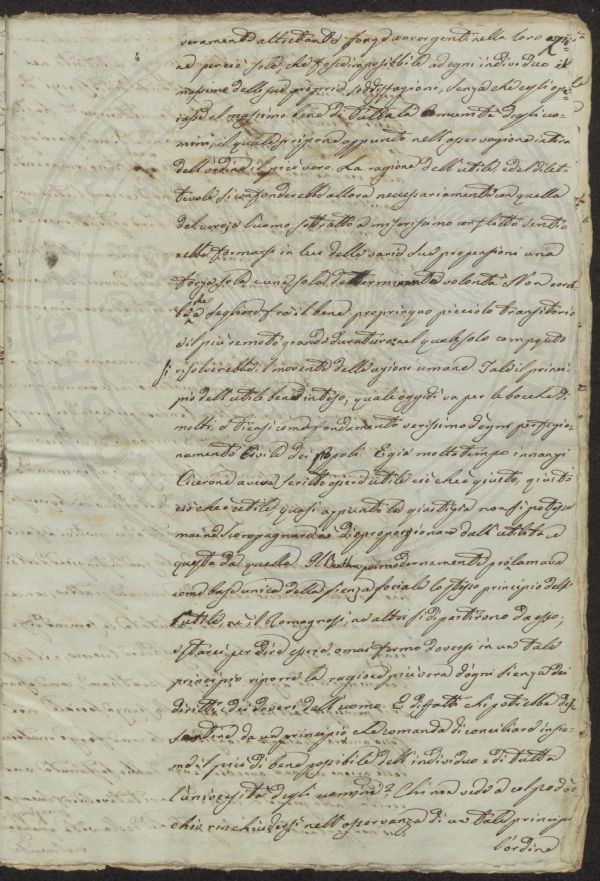 veramente altrettante forze convergenti nella loro azio-
ne perciò sola, che fosse impossibile ad ogni individuo il
massimo delle sue proprie soddisfazioni, senza che egli ope-
rasse el massimo bene di tutta la Comunità degli uo-
mini, il quale si ripone appunto nell'osservazione intiera
dell'ordine il più vero. La ragione dell'utile, e del dilet-
tevole si confonderebbe allora necessariamente con quella
del vero; e l'uomo sottratto a miserissimo conflitto senti-
rebbe formarsi in lui delle varie sue propensioni una
forza sola e una sola determinata volontà. Non avreb-
be che a scegliere fra il bene propinquo piccolo transitorio
e il più remoto grande duraturo: nel qual solo computo
si risolverebbe il movente delle azioni umane. Tale il princi-
pio dell'utile bene inteso, quale oggidì va per le bocche di
molti, e tiensi come fondamento verissimo d'ogni perfezio-
namento Civile dei popoli. E già molto tempo innanzi
Cicerone aveva scritto essere utile ciò che è giusto, giusto
ciò che è utile quasi appunto la giustizia non si potesse
mai nè scompagnare o disproporzionare dall'utilità e
questa da quella. Il Bentham modernamente proclamava
come base unica della scienza sociale lo stesso principio dell'
utile, nè il Romagnosi, nè altri si dipartirono da esso;
e starei per dire essere omai fermo doversi in un tale
principio riporre la ragione più vera d'ogni scienza dei
diritti e dei doveri dell'uomo. E diffatti chi potrebbe dis-
sentire da un principio che comanda di conciliare insie-
me il più di bene possibile dell'individuo e di tutta
l'università degli uomini? Chi non vede a colpo d'oc-
chio rinchiudersi nell'osservanza di un tale principio
l'ordine